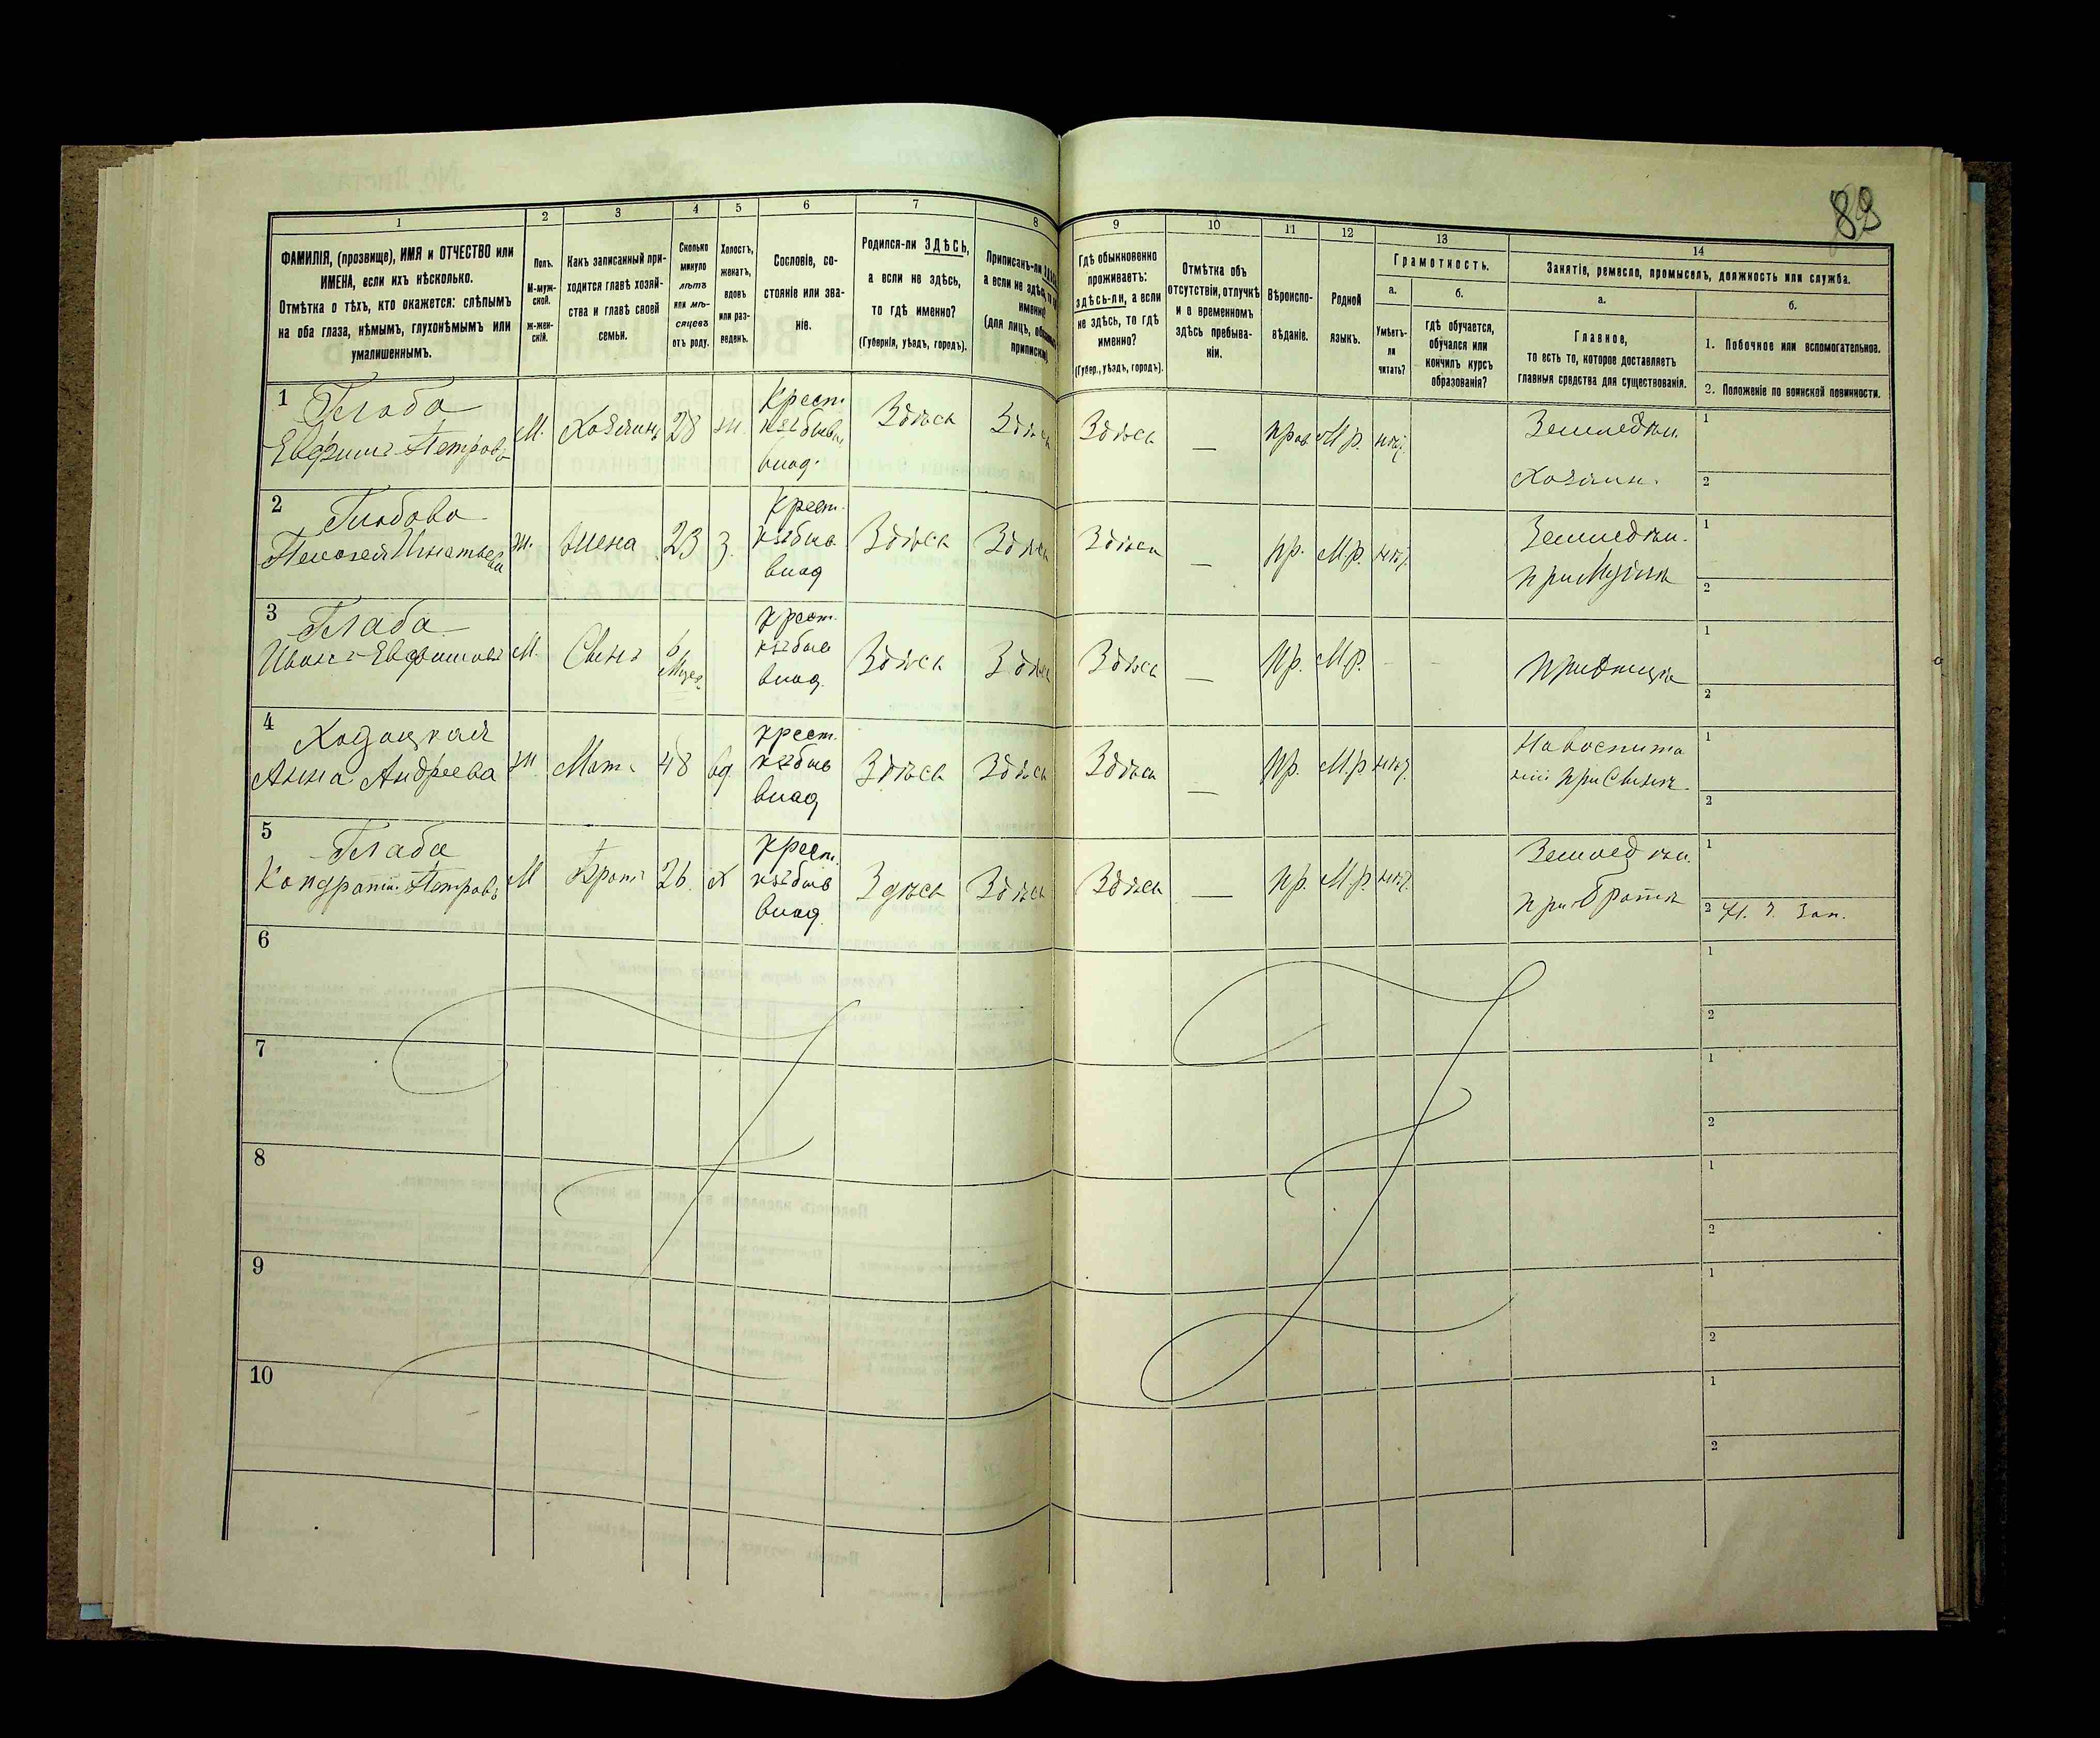 82
1
2
3
4
5
6
7
8
9
10
11
12
13
14
ФАМИЛІЯ, (прозвище), ИМЯ и ОТЧЕСТВО или
ИМЕНА, если ихъ нѣсколько.
Отмѣтка о тѣхъ, кто окажется: слѣпымъ
на оба глаза, нѣмымъ, глухонѣмымъ или
умалишеннымъ.
Полъ.
М-муж-
ской.
ж-жен-
скій.
Какъ записанный при-
ходится главѣ хозяй-
ства и главѣ своей
семьи.
Сколько
минуло
лѣтъ
или мѣ-
сяцевъ
отъ роду.
Холостъ,
женатъ,
вдовъ
или раз-
веденъ.
Сословіе, со-
стояніе или зва-
ніе.
Родился-ли ЗДѢСЬ,
а если не здѣсь,
то гдѣ именно?
(Губернія, уѣздъ, городъ).
Приписанъ-ли
а если не здѣсь,
именно?
(для лицъ,
приписки)
Гдѣ обыкновенно
проживаетъ:
здѣсь-ли, а если
не здѣсь, то гдѣ
именно?
(Губер., уѣздъ, городъ).
Отмѣтка объ
отсутствіи, отлучкѣ
и о временномъ
здѣсь пребыва-
ніи.
Вѣроиспо-
вѣданіе.
Родной
языкъ.
Грамотность.
а.
Умѣетъ-
ли
читать?
б.
гдѣ обучается,
обучался или
кончилъ курсъ
образованія?
Занятіе, ремесло, промыселъ, должность или служба.
а.
Главное,
то есть то, которое доставляетъ
главныя средства для существованія.
б.
1. Побочное или вспомогательное.
2. Положеніе по воинской повинности.
1 Глаба
Евфимъ Петровъ
М. Хозяинъ 28 ж. Крест. влад. Здѣсь Здѣсь Здѣсь — прав М.р. нѣтъ Земледѣл. Хозяин.
1
2
2
ж. жена 23 з. Крест. влад Здѣсь Здѣсь Здѣсь — пр. М.р. нѣт. Земледѣл. при Мужѣ
1
2
3 Глаба
Иванъ Евфимовъ
М. Сынъ 6 Мцев. крест. влад. Здѣсь Здѣсь Здѣсь — Пр. М.р. - -
1
2
4
Анна Андреева
ж Мать 48 вд. крест. влад Здѣсь Здѣсь Здѣсь — Пр. М.р нѣт. На воспита
нии при Сынѣ.
1
2
5 Глаба
Кондратій Петровъ
М Братъ 26. х крест. влад. Здѣсь Здѣсь Здѣсь — пр. М.р. нѣт. Земледѣл. при братѣ
1
2 Зап.
6
1
2
7
1
2
8
1
2
9
1
2
10
1
2